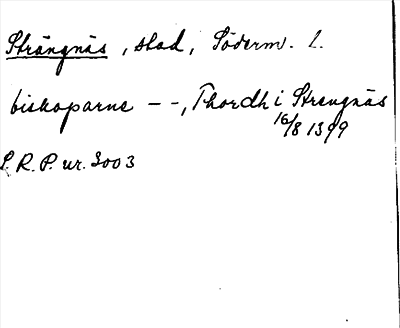 Strängnäs, stad, Söderm. L.
biskoparne - -, Thordh i Strengnäs
16/8 1399
S.R.P. nr. 3003